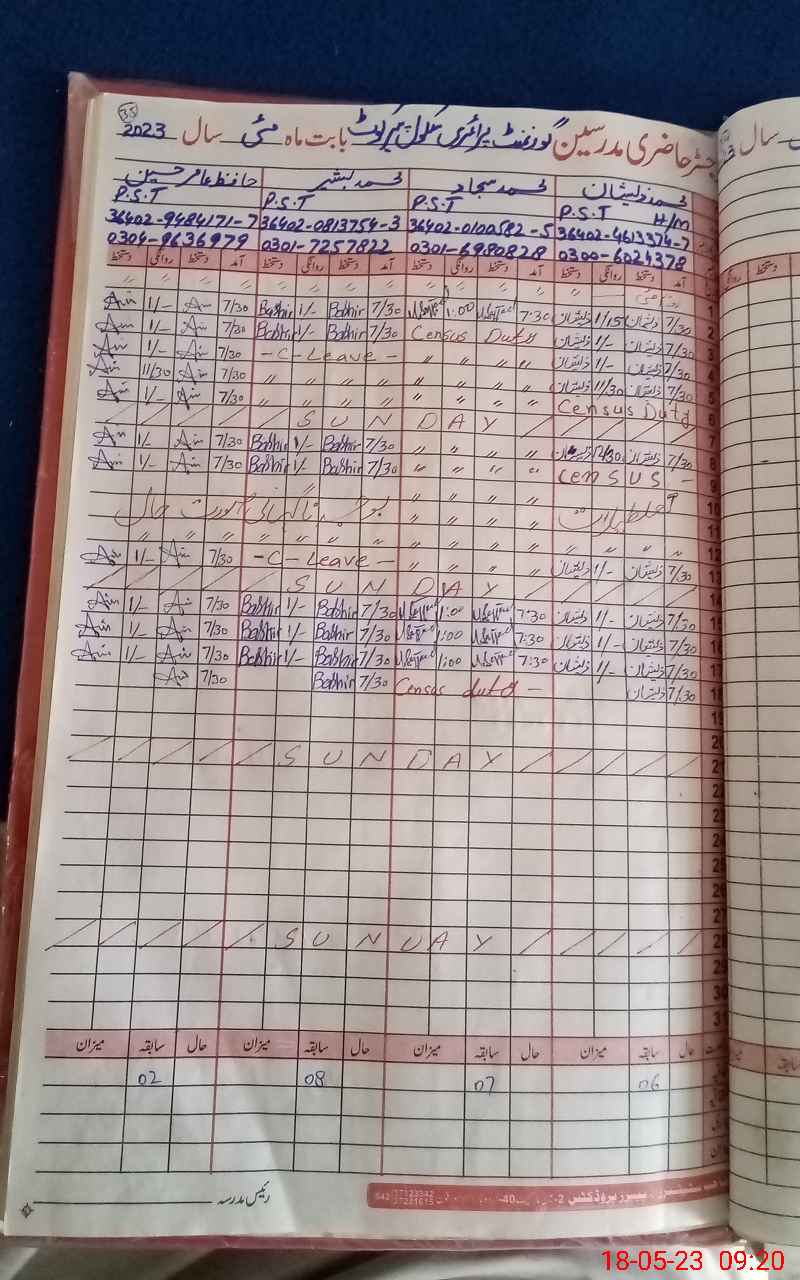 35
رجسٹر حاضری مدرسین گورنمنٹ پرائمری سکول بابت ماہ مئی سال 2023
محمد ذیشان محمد سجاد محمد بشیر حافظ عامر حسین
P.S.T H/M P.S.T P.S.T P.S.T
36402-4613374-7 36402-0100582-5 36402-0813754-3 36402-9484171-7
0300-6024378 0301-6980828 0301-7257822 0304-9636979
آمد دستخط روانگی دستخط آمد دستخط روانگی دستخط آمد دستخط روانگی دستخط آمد دستخط روانگی دستخط
1 " " " " " " " "
2 7/30 ذیشان 1/15 ذیشان 7:30 1:00 7/30 Bashir 1/- Bashir 7/30 Am 1/- Am
3 7/30 ذیشان 1/- ذیشان Census Duty 7/30 Bashir 1/- Bashir 7/30 Am 1/- Am
4 7/30 ذیشان 1/- ذیشان " " " " - C - Leave - 7/30 Am 1/- Am
5 7/30 ذیشان 11/30 ذیشان " " " " " " " " 7/30 Am 11/30 Am
6 Census Duty " " " " " " " " 7/30 Am 1/- Am
7 SUNDAY
8 7/30 ذیشان 12/30 ذیشان " " " " 7/30 Bashir 1/- Bashir 7/30 Am 1/- Am
9 Census - " " " " 7/30 Bashir 1/- Bashir 7/30 Am 1/- Am
10 " " " "
11 تعطیلات " " " " بوجہ ناگہانی صورت حال
12 " " " " " " " " " " " " " " " "
13 7/30 ذیشان 1/- ذیشان " " " " - C - Leave - 7/30 Am 1/- Am
SUNDAY
15 7/30 ذیشان 1/- ذیشان 7:30 1:00 7/30 Bashir 1/- Bashir 7/30 Am 1/- Am
16 7/30 ذیشان 1/- ذیشان 7:30 1:00 7/30 Bashir 1/- Bashir 7/30 Am 1/- Am
17 7/30 ذیشان 1/- ذیشان 7:30 1:00 7/30 Bashir 1/- Bashir 7/30 Am 1/- Am
18 7/30 ذیشان Census duty - 7/30 Bashir 7/30 Am
19
20
21 SUNDAY
22
23
24
25
26
27
28 SUNDAY
29
30
31
حال سابقہ میزان حال سابقہ میزان حال سابقہ میزان حال سابقہ میزان
06 07 08 02
رئیس مدرسہ
18-05-23 09:20